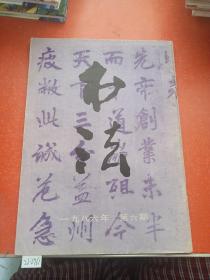 先帝創業未半
而中道崩殂今
天下三分益州
疲敝此誠危急
书法
一九八六年 第六期